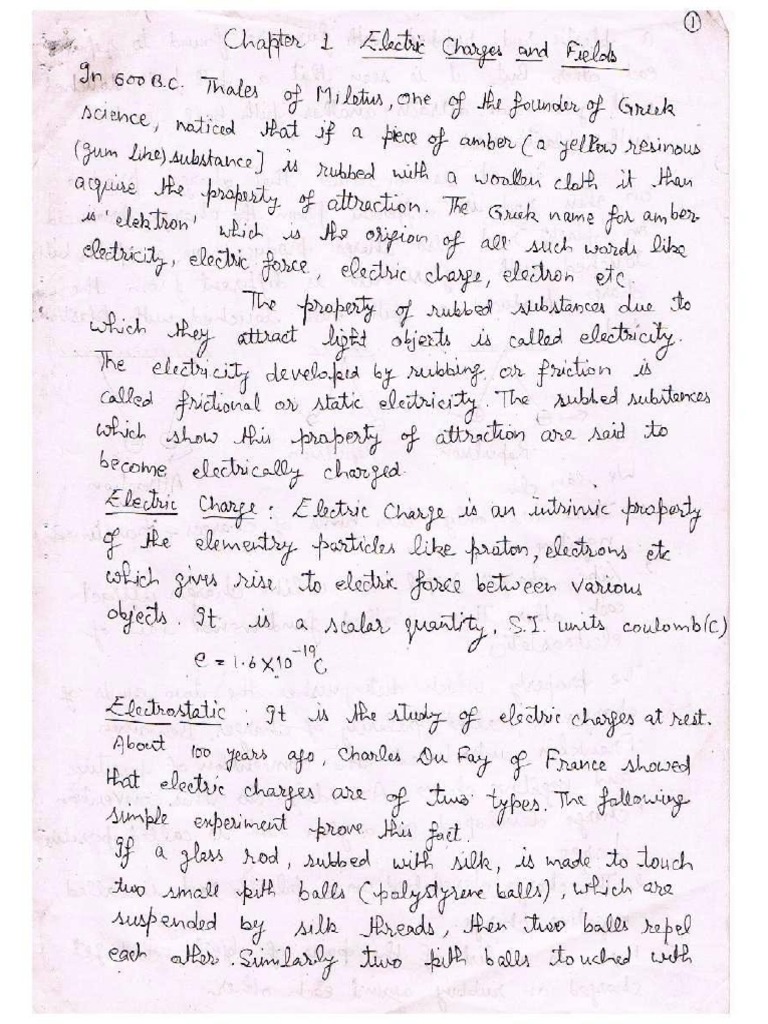 ①
Chapter 1 Electric Charges and Fields
In 600 B.C. Thales of Miletus, one of the founder of Greek
science, noticed that if a piece of amber (a yellow resinous
(gum like) substance] is rubbed with a woollen cloth it then
acquire the property of attraction. The Greek name for amber
is 'elektron' which is the origion of all such words like
electricity, electric force, electric charge, electron etc
The property of rubbed substances due to
which they attract light objects is called electricity.
The electricity developed by rubbing or friction is
called frictional or static electricity. The rubbed substances
which show this property of attraction are said to
become electrically charged.
Electric Charge: Electric Charge is an intrinsic property
of the elementry particles like proton, electrons etc
which gives rise to electric force between various
objects. It is a scalar quantity. S.I. units coulomb(C)
e = 1.6×10⁻¹⁹C
Electrostatic: It is the study of electric charges at rest.
About 100 years ago, Charles Du Fay of France showed
that electric charges are of two types. The following
simple experiment prove this fact.
If a glass rod, rubbed with silk, is made to touch
two small pith balls (polystyrene balls), which are
suspended by silk threads, then two balls repel
each other. Similarly two pith balls touched with